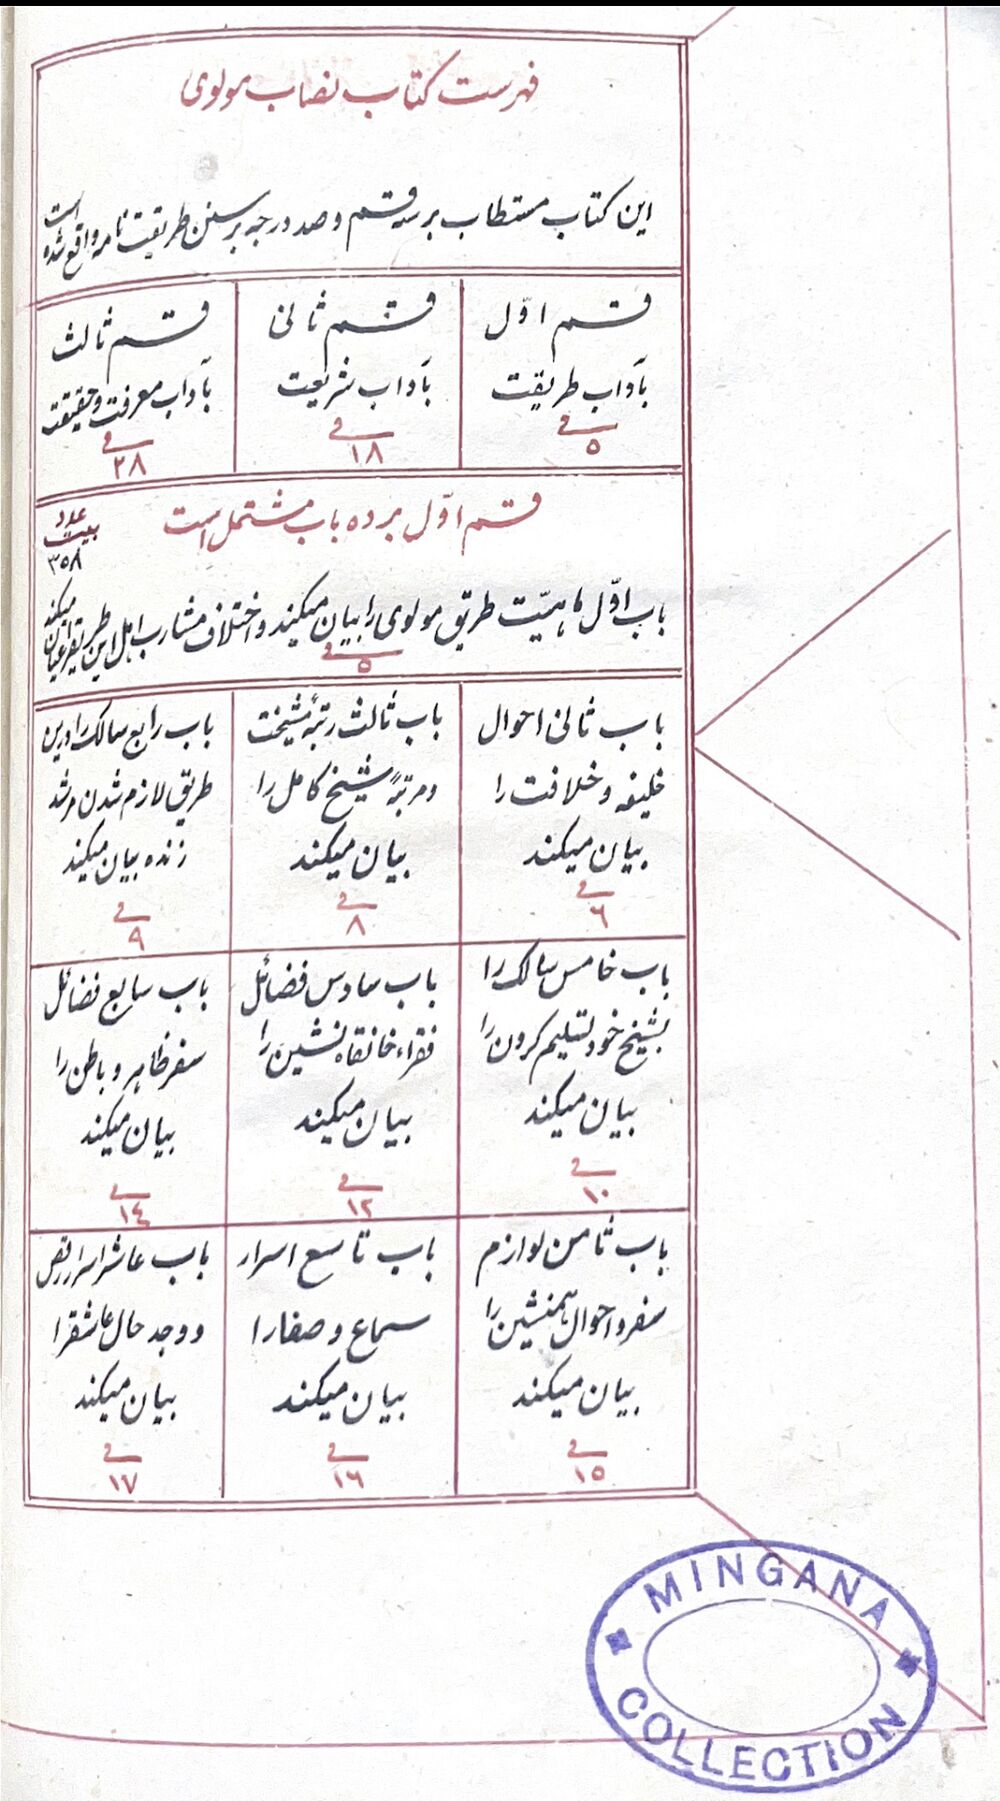 فهرست کتاب نصاب مولوی
این کتاب مستطاب بر سه قسم و صد درجه بر سنن طریقت نامه واقع شده است
قسم اوّل
بآداب طریقت
فی
٥
قسم ثانی
بآداب شریعت
فی
١٨
قسم ثالث
بآداب معرفت و حقیقت
فی
٢٨
قسم اوّل بر ده باب مشتمل است
عدد
بیت
٣٥٨
باب اوّل ماهیّت طریق مولوی را بیان میکند و اختلاف مشارب اهل این طریقرا عیان میکند
فی
٥
باب ثانی احوال
خلیفه و خلافت را
بیان میکند
فی
٦
باب ثالث رتبهٔ مشیخت
و مرتبهٔ شیخ کامل را
بیان میکند
فی
٨
باب رابع سالک را درین
طریق لازم شدن مرشد
زنده بیان میکند
فی
٩
باب خامس سالک را
بشیخ خود تسلیم کردن را
بیان میکند
فی
١٠
باب سادس فضائل
فقراء خانقاه نشین را
بیان میکند
فی
١٢
باب سابع فضائل
سفر ظاهر و باطن را
بیان میکند
فی
١٤
باب ثامن لوازم
سفر و احوال همنشین را
بیان میکند
فی
١٥
باب تاسع اسرار
سماع و صفارا
بیان میکند
فی
١٦
باب عاشر اسرار رقص
و وجد حال عاشقرا
بیان میکند
فی
١٧
MINGANA
COLLECTION